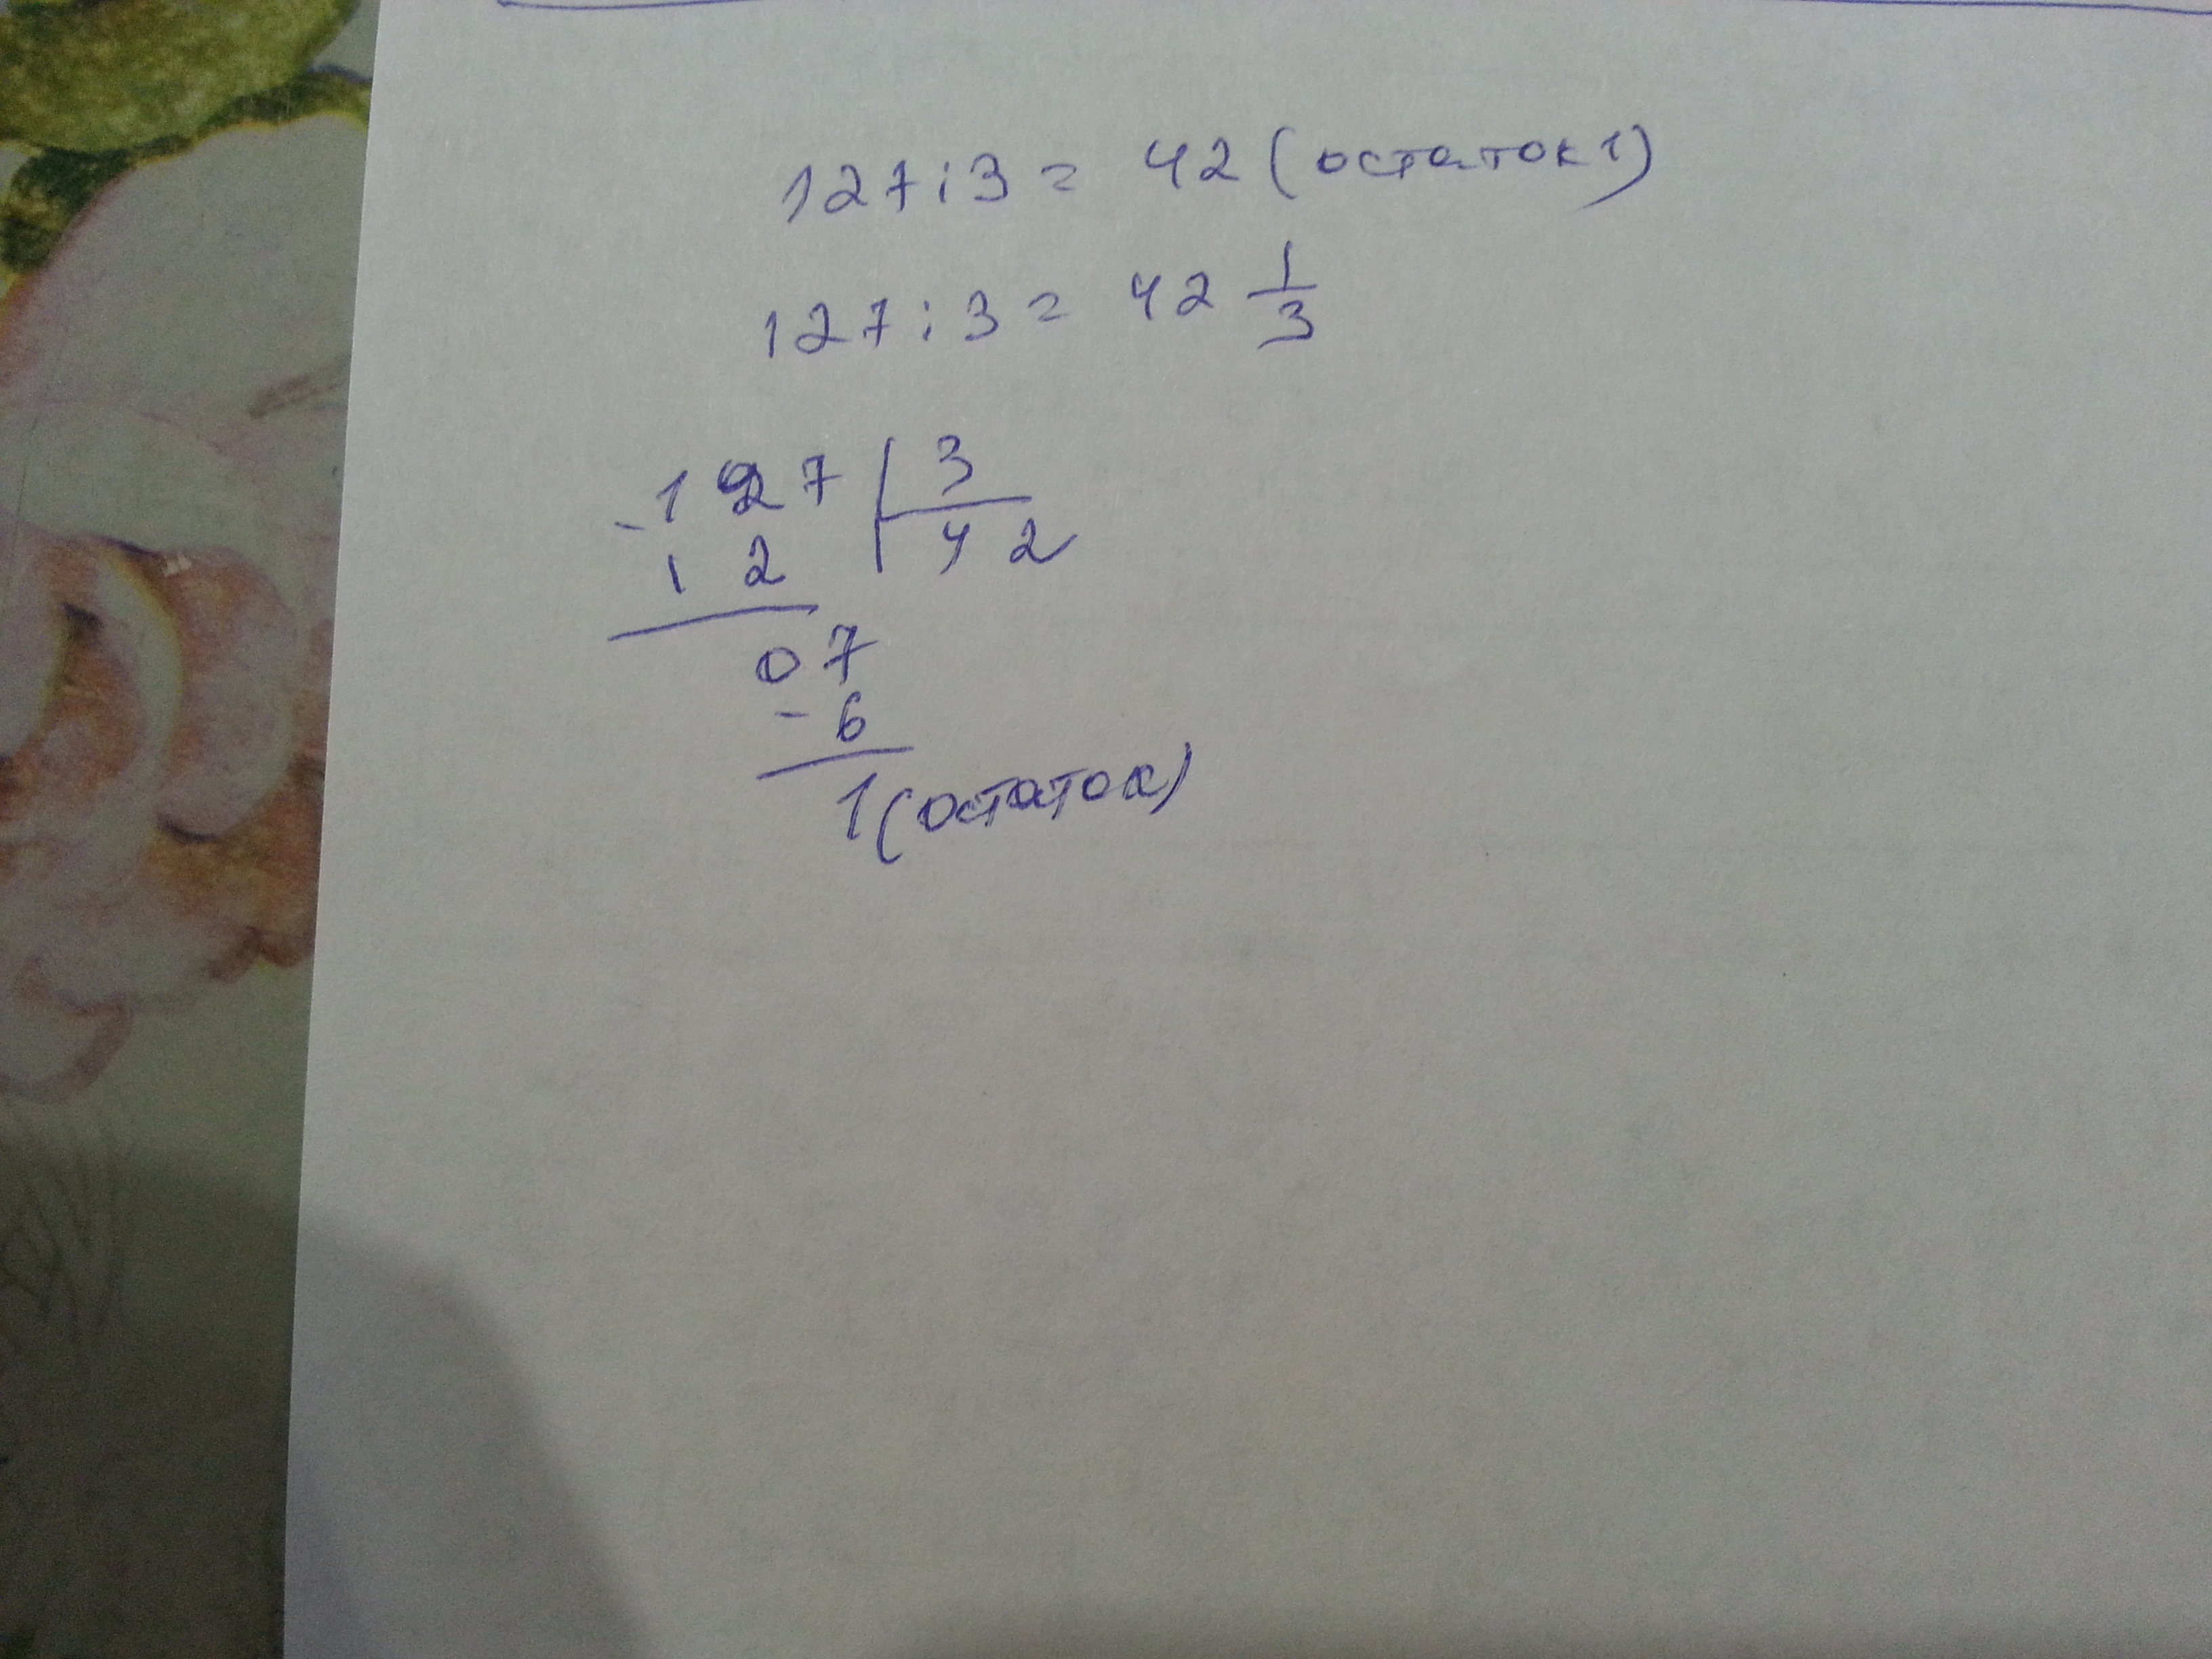 127:3 = 42 (остаток 1)
127:3 = 42 1/3
-127 | 3
12 | 42
07
-6
1 (остаток)